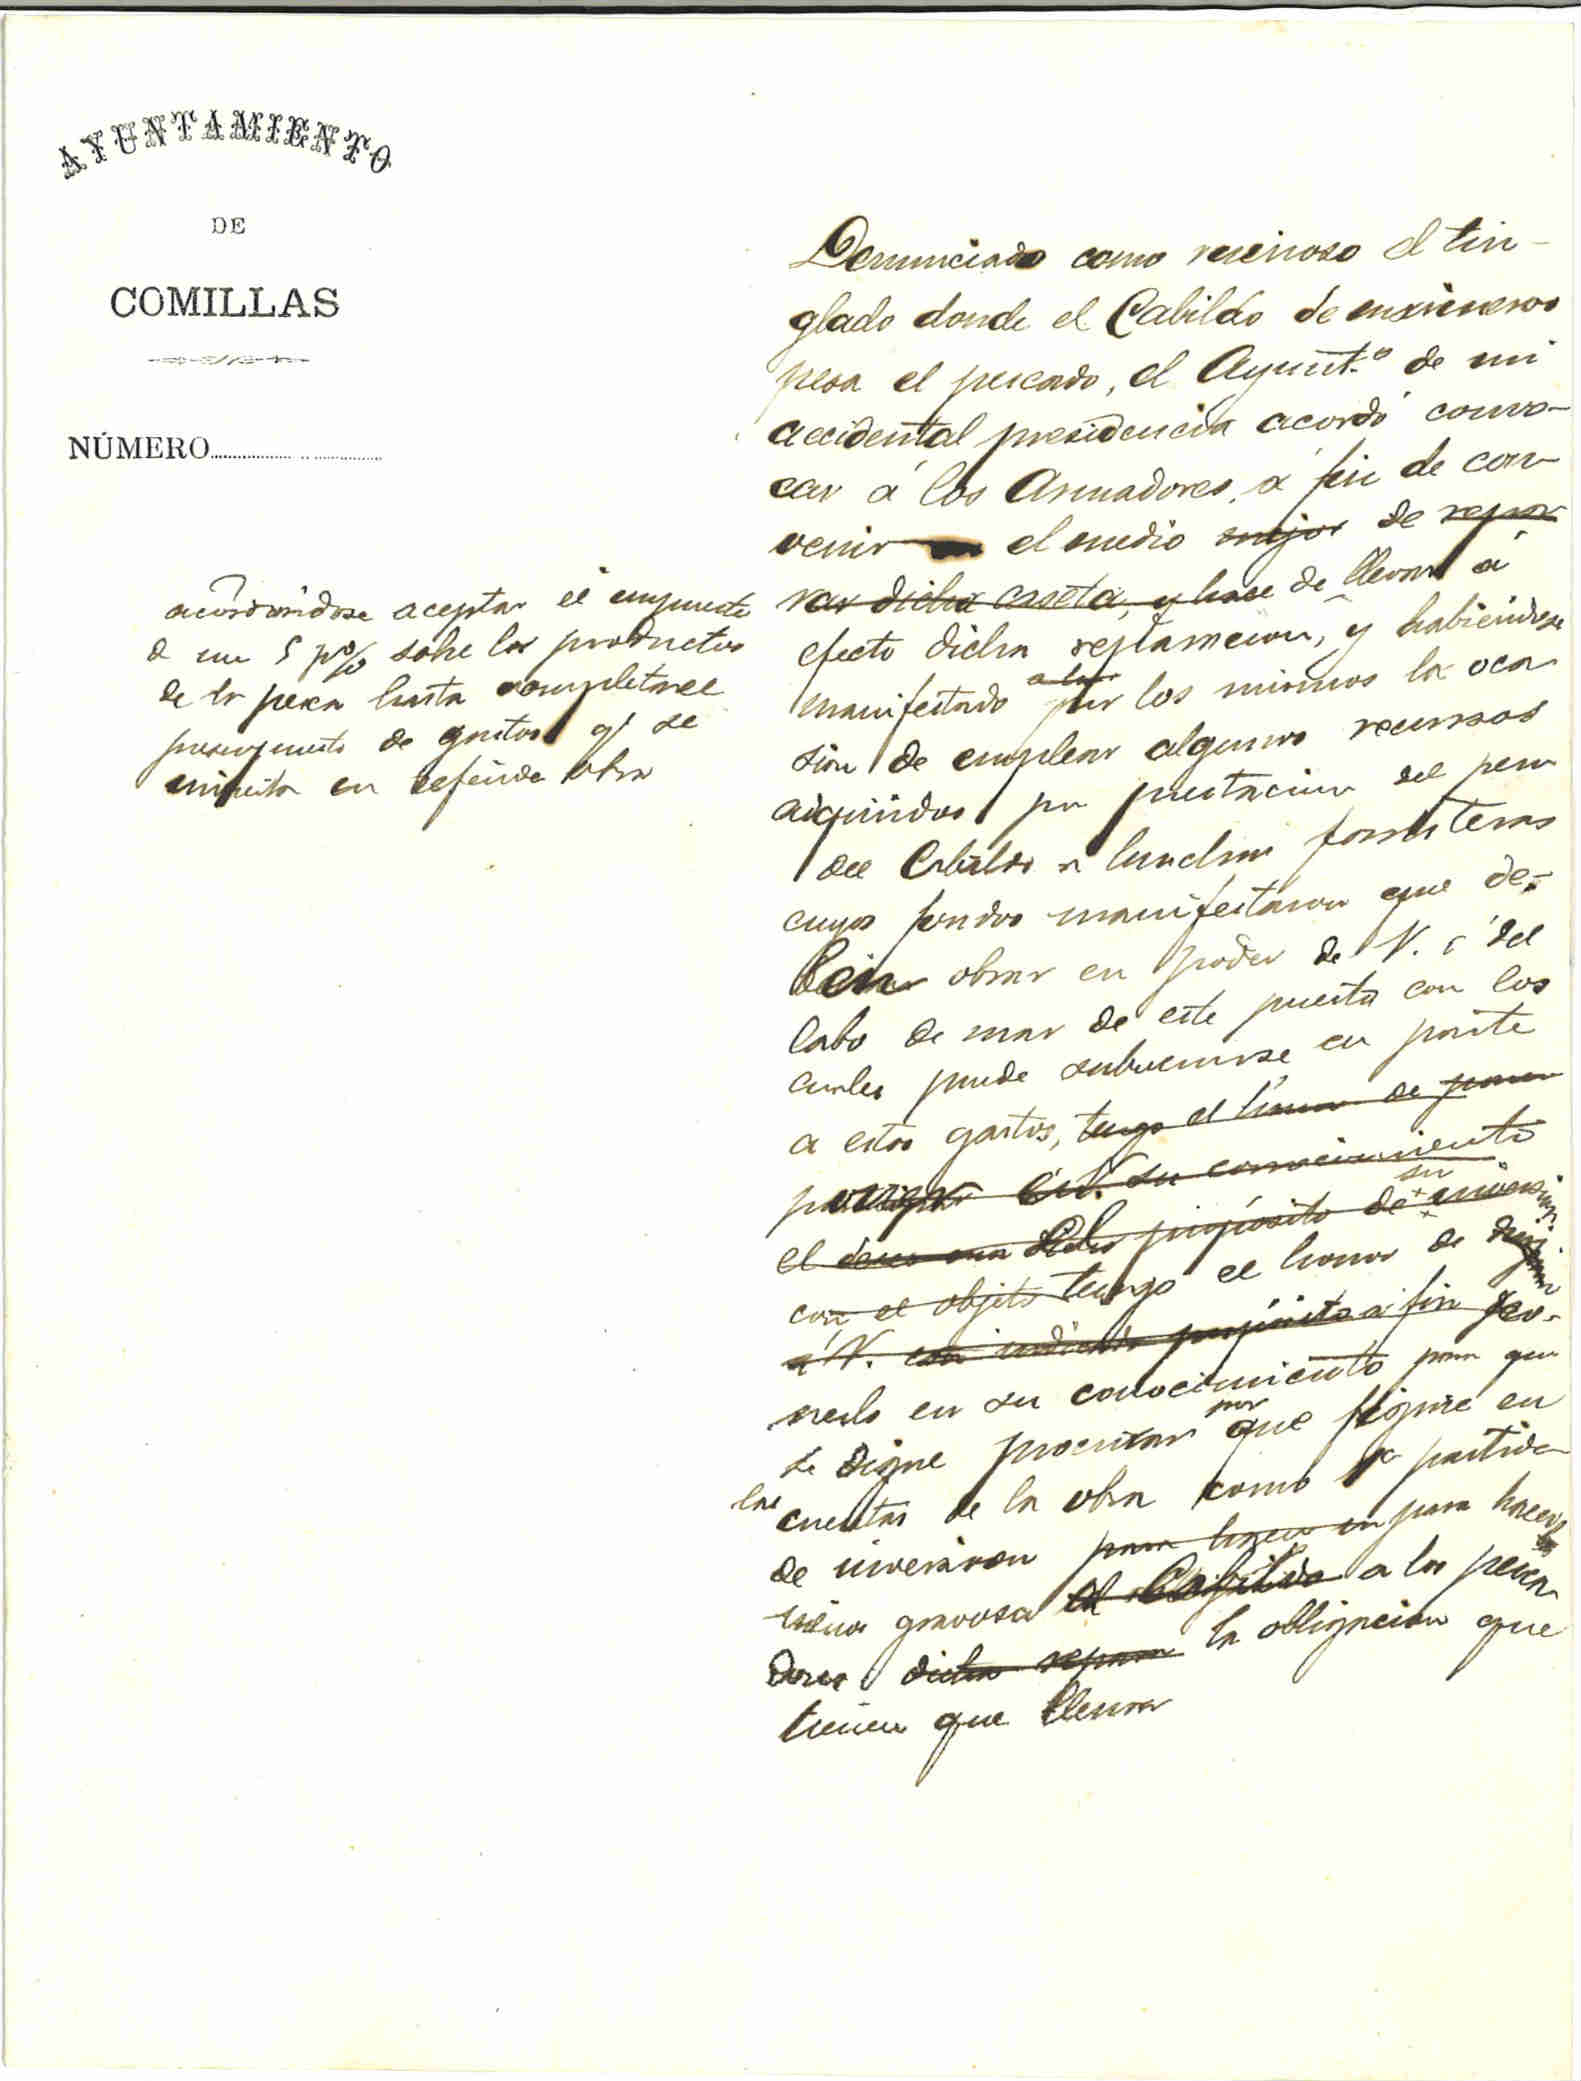 AYUNTAMIENTO
DE
COMILLAS
NÚMERO
acordándose aceptar el impuesto
d un 5 p% sobre los productos
de la pesca hasta completar el
presupuesto de gastos q' se
invierta en referida obra
Denunciado como ruinoso el tin-
glado donde el Cabildo de mareantes
pesa el pescado, el Ayunt.º de mi
accidental presidencia acordó convo-
car á los Armadores, á fin de con-
venir el medio mejor de repa
rar dicha caseta, y hace de llevar á
efecto dicha reparacion, y habiendose
manifestado por los mismos la oca
sion de emplear algunos recursos
adquiridos por prestacion del peso
del Cabildo a lanchas forasteras
cuyos fondos manifestaron que de-
bian obrar en poder de V. ó del
Cabo de mar de este puerto con los
cuales puede subvenirse en parte
a estos gastos, tengo el honor de poner
participar en su conocimiento
el deseo dicho propósito de su inversion
con el objeto tengo el honor de dirigirme
á V. con indicado propósito a fin po-
nerlo en su conocimiento para que
se digne procurar por que figure en
las cuentas de la obra como partida
de inversion para hacer en para hacer
menos gravosa al Cabildo a los pesca
dores dicha repara la obligacion que
tienen que llenar